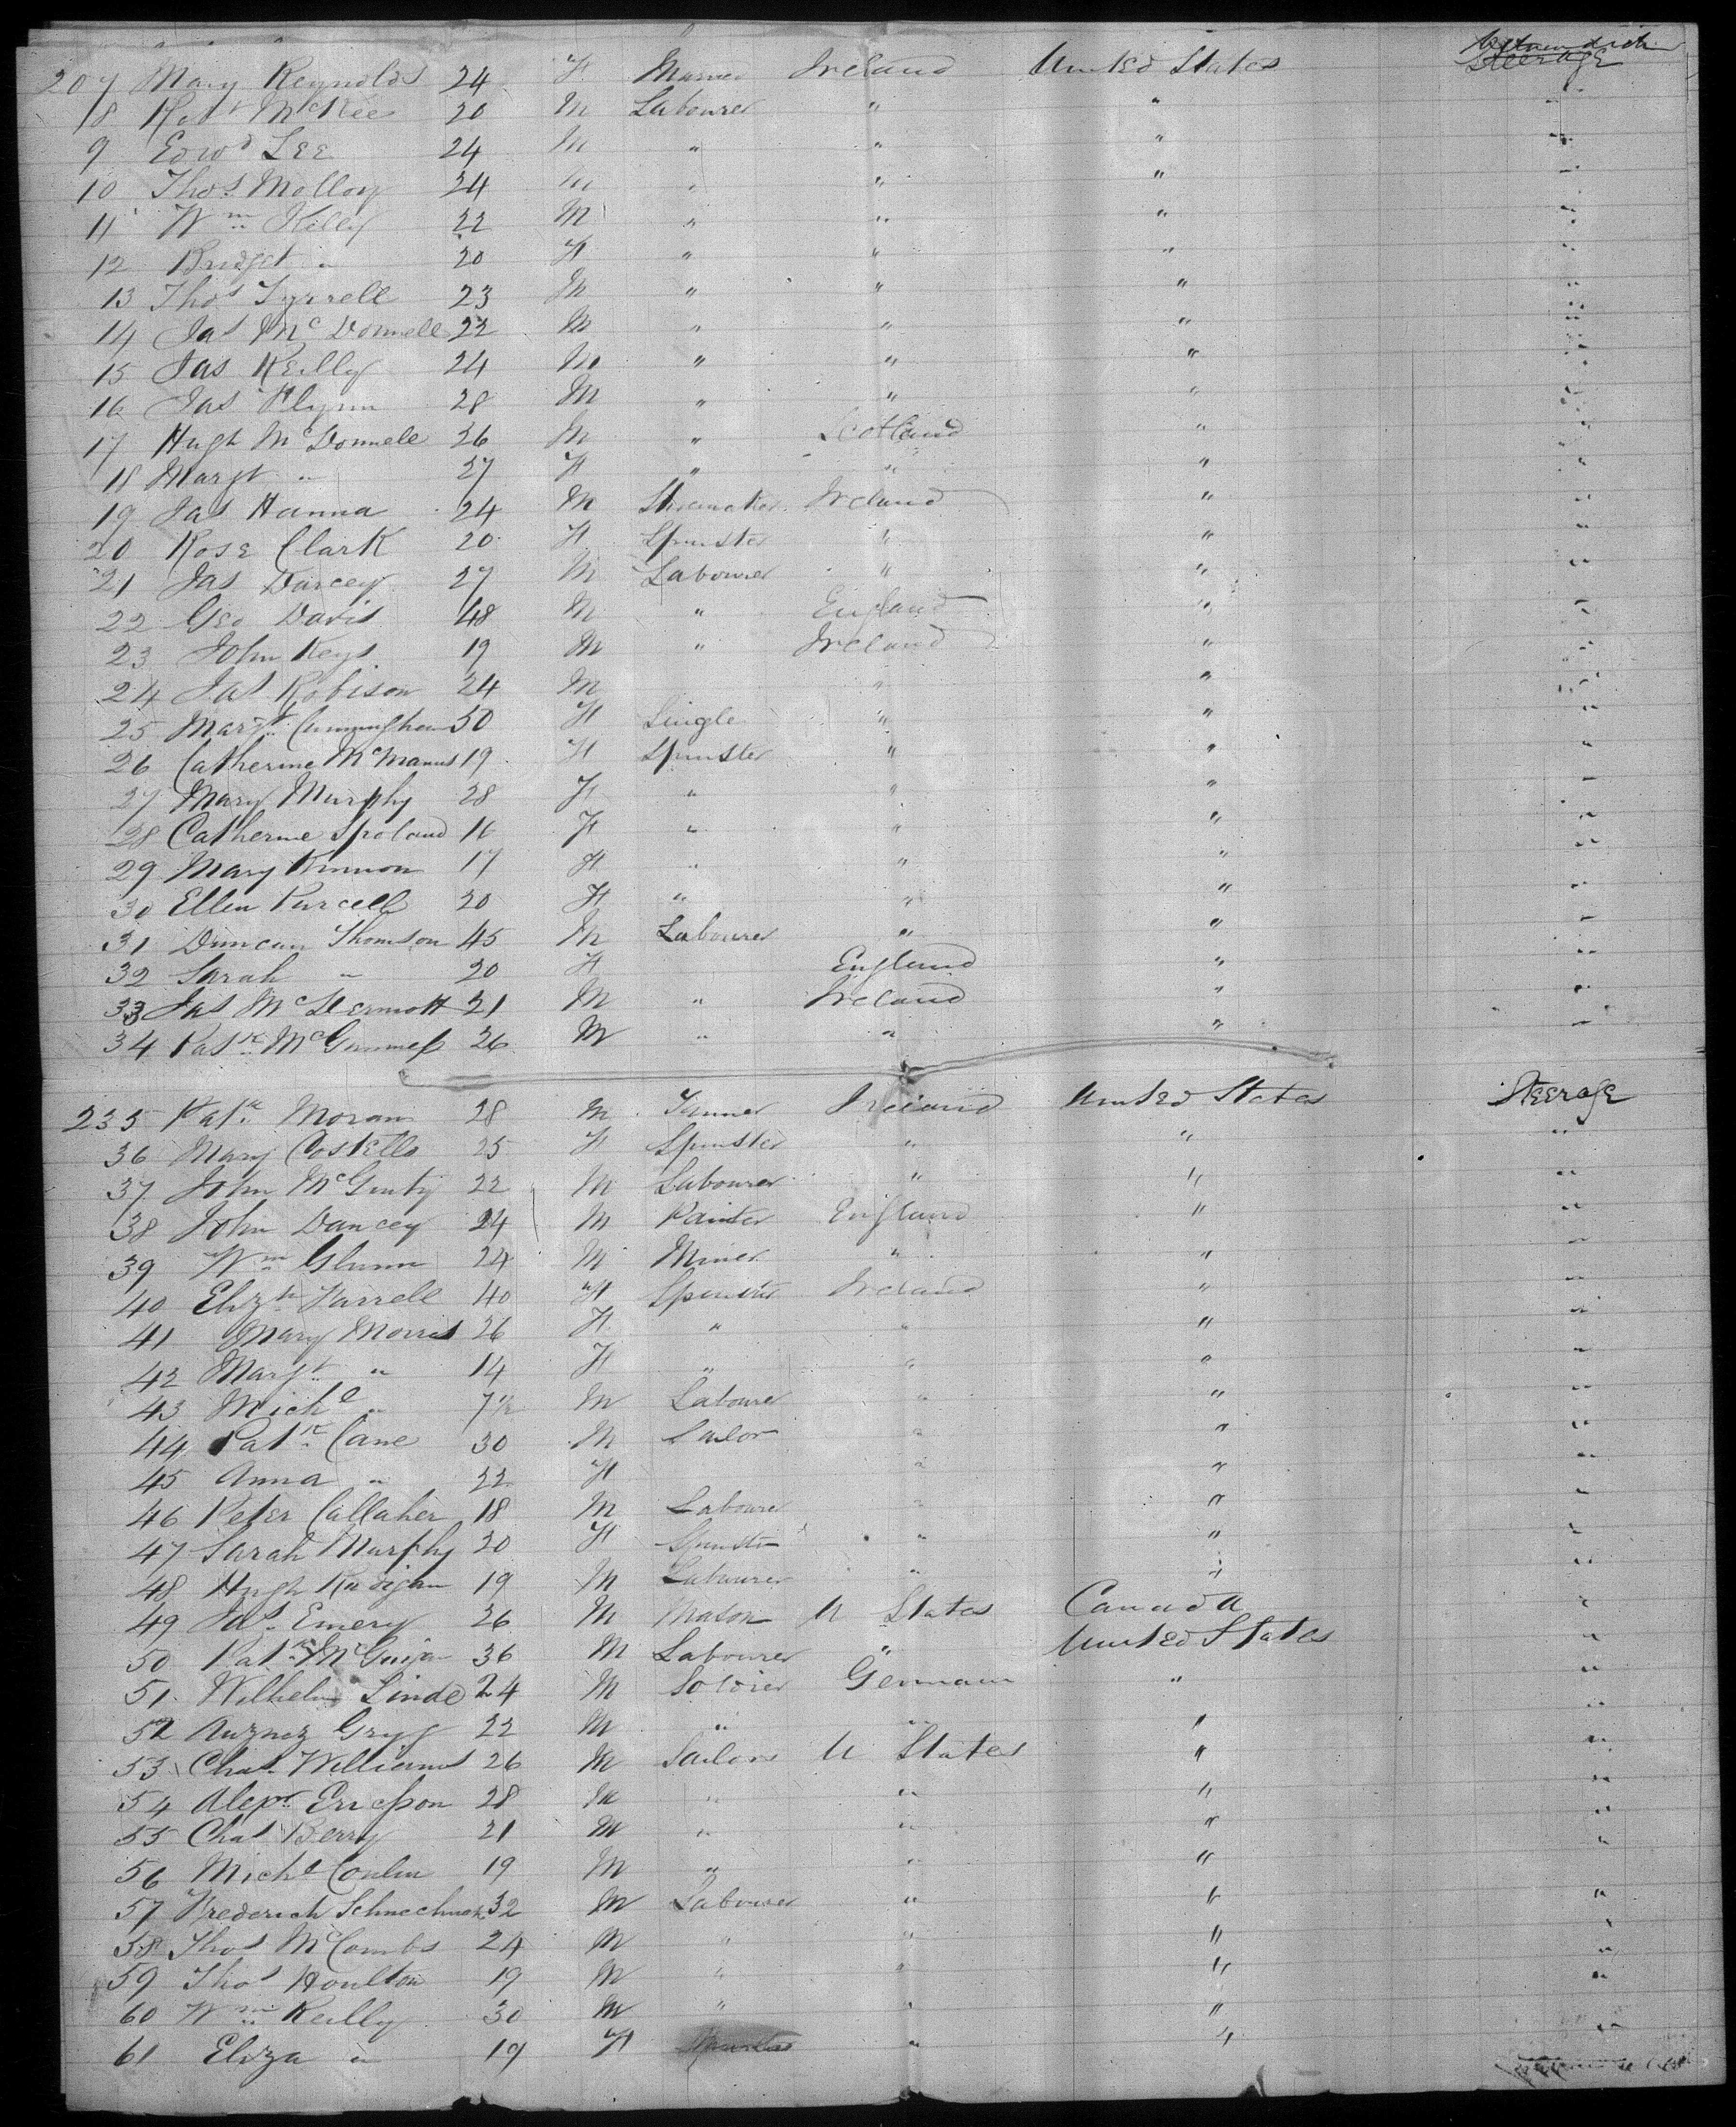 207 Mary Reynolds 24 F Married Ireland United States Steerage
18 Robt McKee 20 M Labourer " " "
9 Edwd Lee 24 M " " " "
10 Thos Molloy 24 M " " " "
11 Wm Kelly 22 M " " " "
12 Bridget " 20 F " " " "
13 Thos Tyrrell 23 M " " " "
14 Jas McDonnell 22 M " " " "
15 Jas Reilly 24 M " " " "
16 Jas Flynn 28 M " " " "
17 Hugh McDonnell 26 M " Scotland " "
18 Margt " 27 F " " " "
19 Jas Hanna 24 M Shoemaker Ireland " "
20 Rose Clark 20 F Spinster " " "
21 Jas Darcey 27 M Labourer " " "
22 Geo Davis 48 M " England " "
23 John Keys 19 M " Ireland " "
24 Jas Robison 24 M " " "
25 Margt Cunningham 50 F Single " " "
26 Catherine McManus 19 F Spinster " " "
27 Mary Murphy 28 F " " " "
28 Catherine 16 F " " " "
29 Mary Kinnon 17 F " " " "
30 Ellen Purcell 20 F " " " "
31 Duncan Thomson 45 M Labourer " " "
32 Sarah " 20 F England " "
33 Jas McDermott 21 M " Ireland " "
34 Patk 26 M " " " "
235 Patk Moran 28 M Ireland United States Steerage
36 Mary Costello 25 F Spinster " " "
37 John McGinty 22 M Labourer " " "
38 John Dancey 24 M Painter England " "
39 Wm Glunn 24 M Miner " " "
40 Elizth Farrell 40 F Spinster Ireland " "
41 Mary Morris 26 F " " " "
42 Margt " 14 F " " " "
43 Michl " 7½ M Labourer " " "
44 Patk Cane 30 M Sailor " " "
45 Anna " 22 F " " "
46 Peter Callaher 18 M Labourer " " "
47 Sarah Murphy 20 F Spinster " " "
48 Hugh Radigan 19 M Labourer " " "
49 Jas Emery 26 M Mason U States Canada "
50 Patk McGuigan 36 M Labourer " United States "
51 Wilhelm Linde 24 M Soldier German " "
52 Gryf 22 M " " " "
53 Chas Williams 26 M Sailors U States " "
54 Alexr Ericsson 28 M " " " "
55 Chas Berry 21 M " " " "
56 Michl Conlin 19 M " " " "
57 Frederich 32 M Labourer " " "
58 Thos McCombs 24 M " " " "
59 Thos Houlton 19 M " " " "
60 Wm Reilly 30 M " " " "
61 Eliza " 19 F Spinster " " "